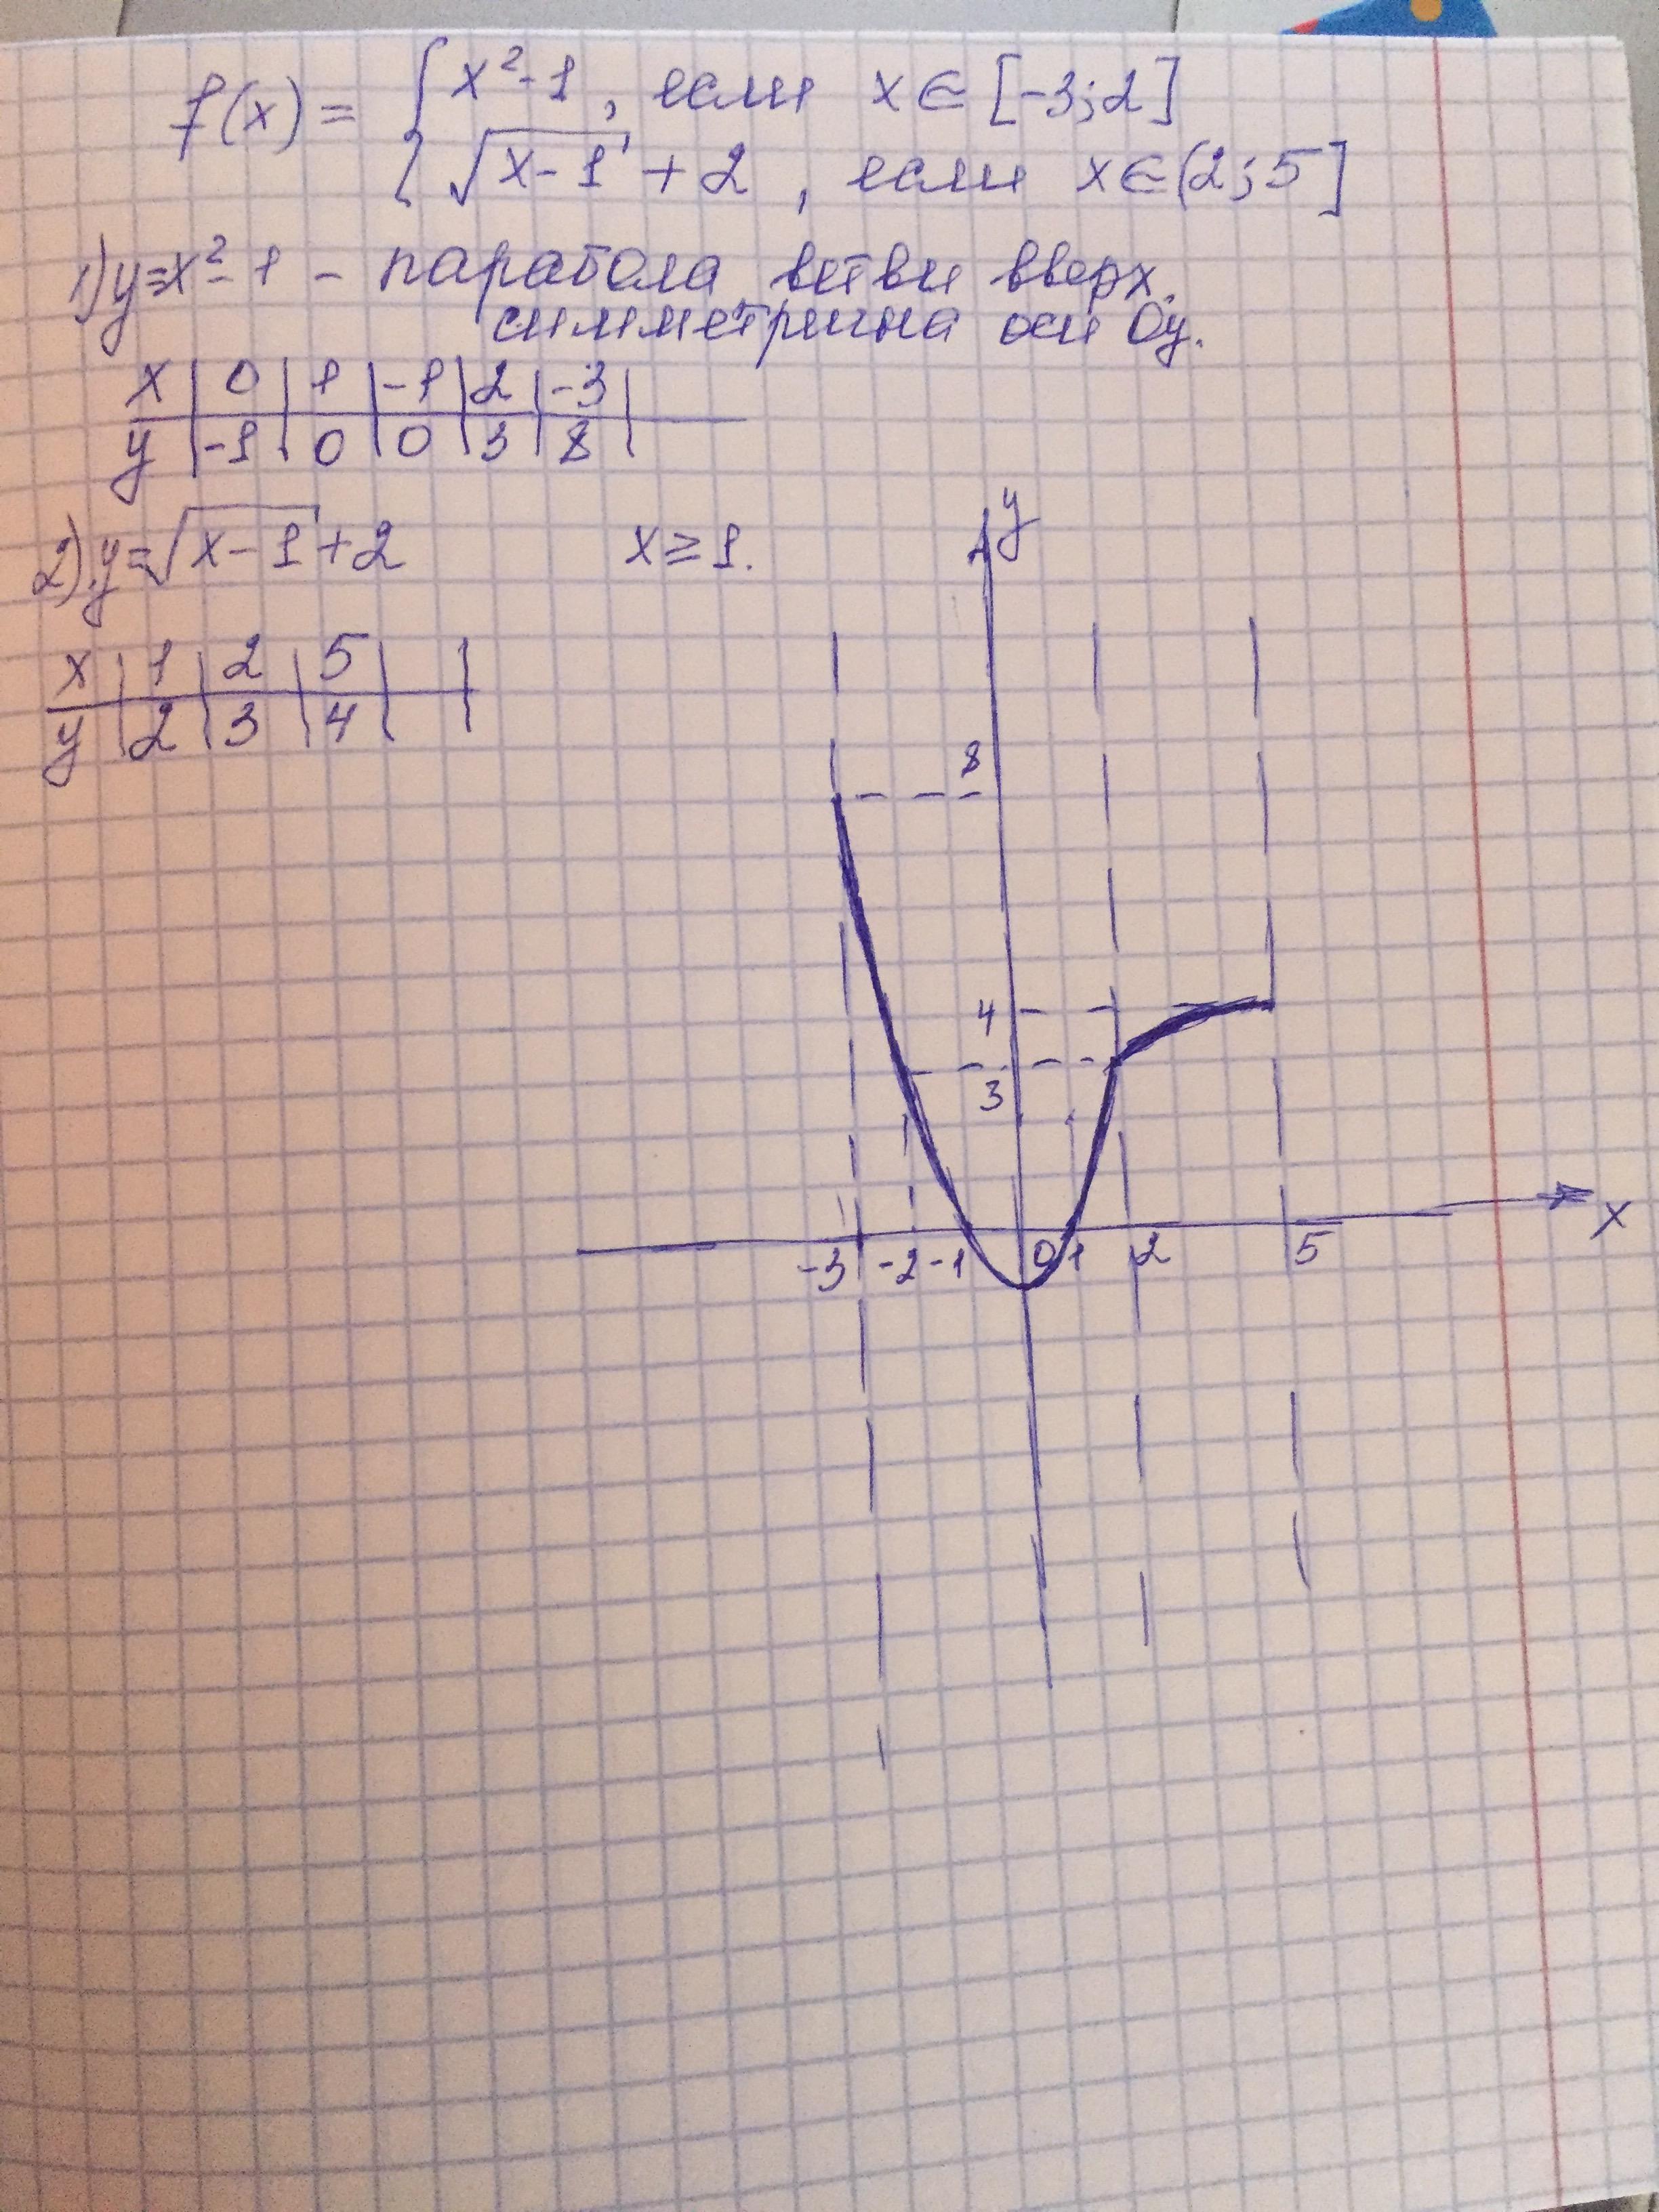 f(x) = { x²-1, если x ∈ [-3;2]
√(x-1) + 2, если x ∈ (2;5]
1) y=x²-1 - парабола ветви вверх.
симметрична оси Oy.
x | 0 | 1 | -1 | 2 | -3 |
y | -1 | 0 | 0 | 3 | 8 |
2). y=√(x-1)+2 x ≥ 1.
x | 1 | 2 | 5 | |
y | 2 | 3 | 4 | |
y
8
4
3
-3 -2 -1 0 1 2 5 x